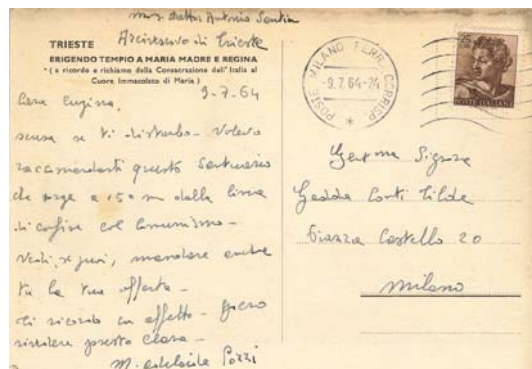 mons. dottor Antonio Santin
Arcivescovo di Trieste
TRIESTE
ERIGENDO TEMPIO A MARIA MADRE E REGINA
" ( a ricordo e richiamo della Consacrazione dell' Italia al
Cuore Immacolato di Maria )
9-7-64
Cara
scusa se ti disturbo - Volevo
raccomandarti questo Santuario
che sorge a 150 m dalla linea
di confine col comunismo -
Vedi, se puoi, mandare anche
tu la tua offerta -
Ti ricordo con affetto - spero
rivedere presto Clara -
M. Adelaide Pozzi
POSTE MILANO FERR. CORRISP.
-9.7.64-24
*
25
POSTE ITALIANE
Gent.ma Signora
Gedda Conti Tilde
Piazza Castello 20
Milano